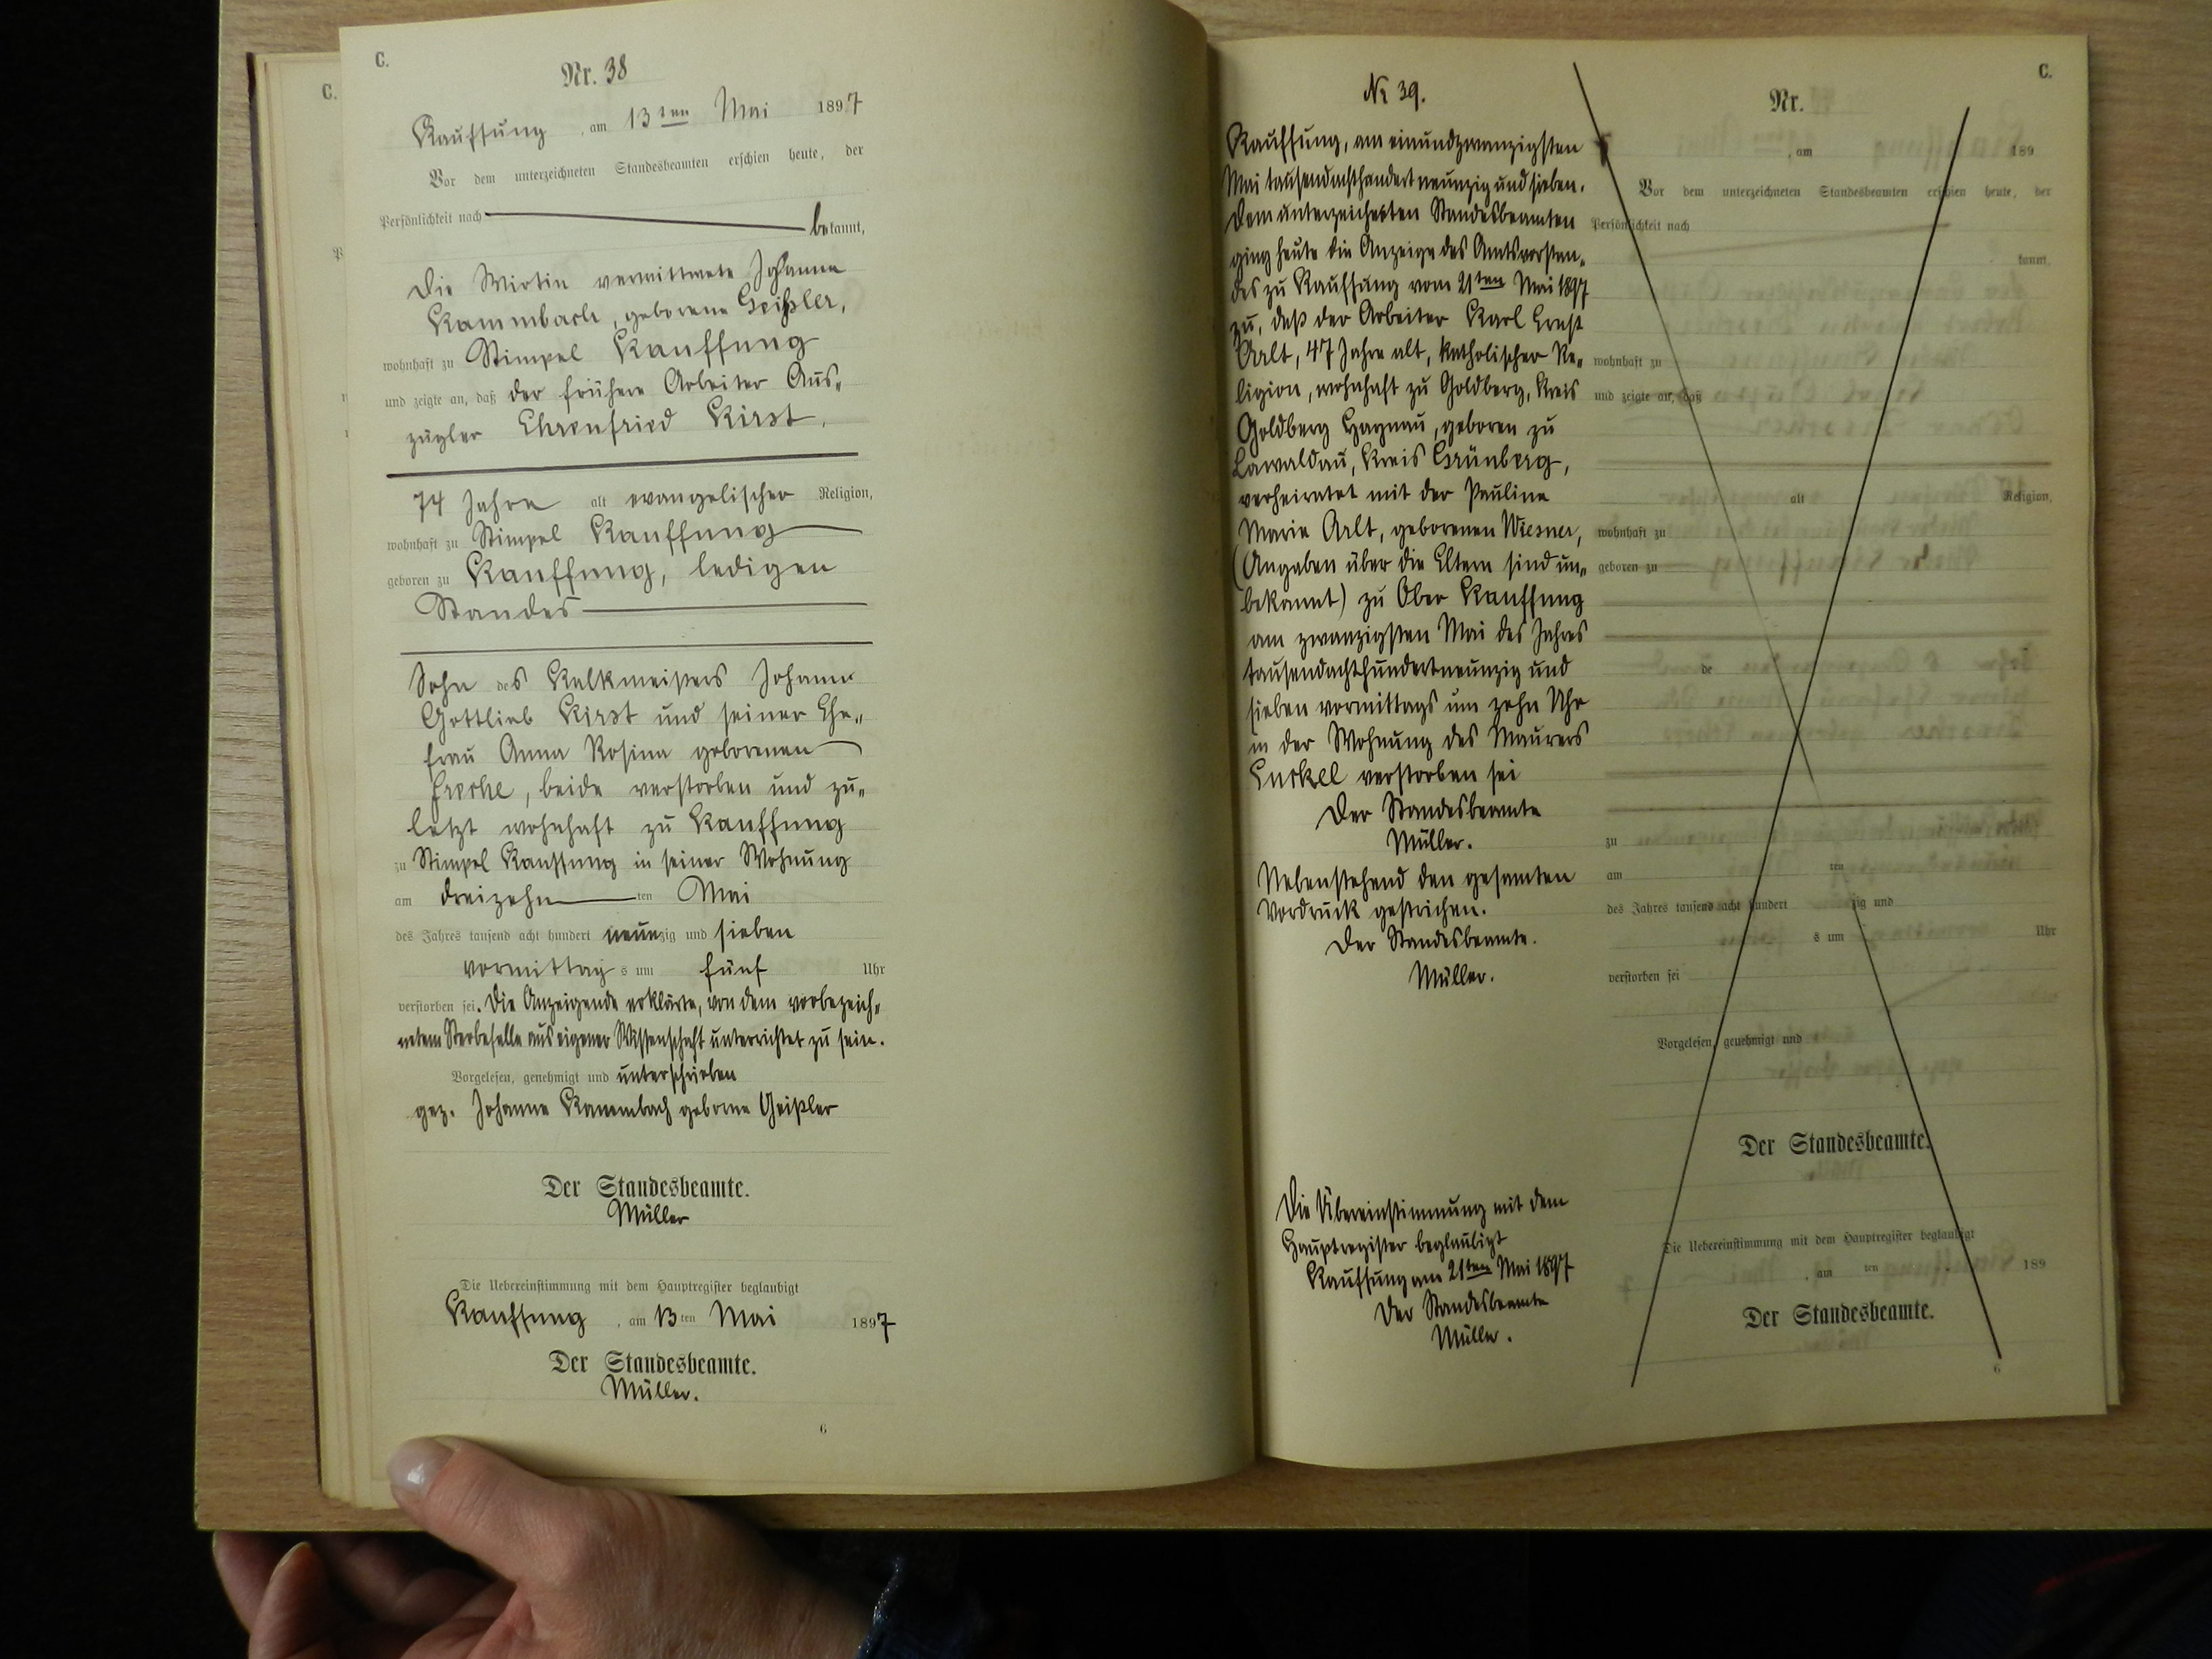 C.
C.
Nr. 38
Kauffung, am 13ten Mai 1897
Vor dem unterzeichneten Standesbeamten erschien heute, der
Persönlichkeit nach bekannt,
die Wirtin verwittwete Johanna
Kammbach, geborene Geißler,
wohnhaft zu Stimpel Kauffung
und zeigte an, daß der frühere Arbeiter Aus-
zügler Ehrenfried Kirst,
74 Jahre alt evangelischer Religion,
wohnhaft zu Stimpel Kauffung
geboren zu Kauffung, ledigen
Standes
Sohn des Kalkmeisters Johann
Gottlieb Kirst und seiner Ehe-
frau Anna Rosina geborenen
, beide verstorben und zu-
letzt wohnhaft zu Kauffung
zu Stimpel Kauffung in seiner Wohnung
am dreizehnten Mai
des Jahres tausend acht hundert neunzig und sieben
vormittags um fünf Uhr
verstorben sei. Die Anzeigende erklärte, von dem vorbezeich-
netem Sterbefalle aus eigener Wissenschaft unterrichtet zu sein.
Vorgelesen, genehmigt und unterschrieben
gez. Johanna Kammbach geborne Geißler
Der Standesbeamte.
Müller
Die Uebereinstimmung mit dem Hauptregister beglaubigt
Kauffung, am 13ten Mai 1897
Der Standesbeamte.
Müller.
6
No 39.
Kauffung, am einundzwanzigsten
Mai tausendachthundertneunzig und sieben.
Dem unterzeichneten Standesbeamten
ging heute die Anzeige des Amtsvorstan-
des zu Kauffung vom 21ten Mai 1897
zu, daß der Arbeiter Karl Ernst
Arlt, 47 Jahre alt, katholischer Re-
ligion, wohnhaft zu Goldberg, Kreis
Goldberg Haynau, geboren zu
Lawaldau, Kreis Grünberg,
verheiratet mit der Pauline
Marie Arlt, geborenen Wiesner,
(Angaben über die Eltern sind un-
bekannt) zu Ober Kauffung
am zwanzigsten Mai des Jahres
tausendachthundertneunzig und
sieben vormittags um zehn Uhr
in der Wohnung des Maurers
verstorben sei
Der Standesbeamte
Müller.
Nebenstehend den gesamten
Vordruck gestrichen.
Der Standesbeamte.
Müller.
Die Übereinstimmung mit dem
Hauptregister beglaubigt
Kauffung am 21ten Mai 1897
Der Standesbeamte
Müller.
C.
Nr.
, am 189
Vor dem unterzeichneten Standesbeamten erschien heute, der
Persönlichkeit nach
kannt,
wohnhaft zu
und zeigte an, daß
alt Religion,
wohnhaft zu
geboren zu
de
zu
am ten
des Jahres tausend acht hundert zig und
s um Uhr
verstorben sei
Vorgelesen, genehmigt und
Der Standesbeamte.
Die Uebereinstimmung mit dem Hauptregister beglaubigt
, am ten 189
Der Standesbeamte.
6